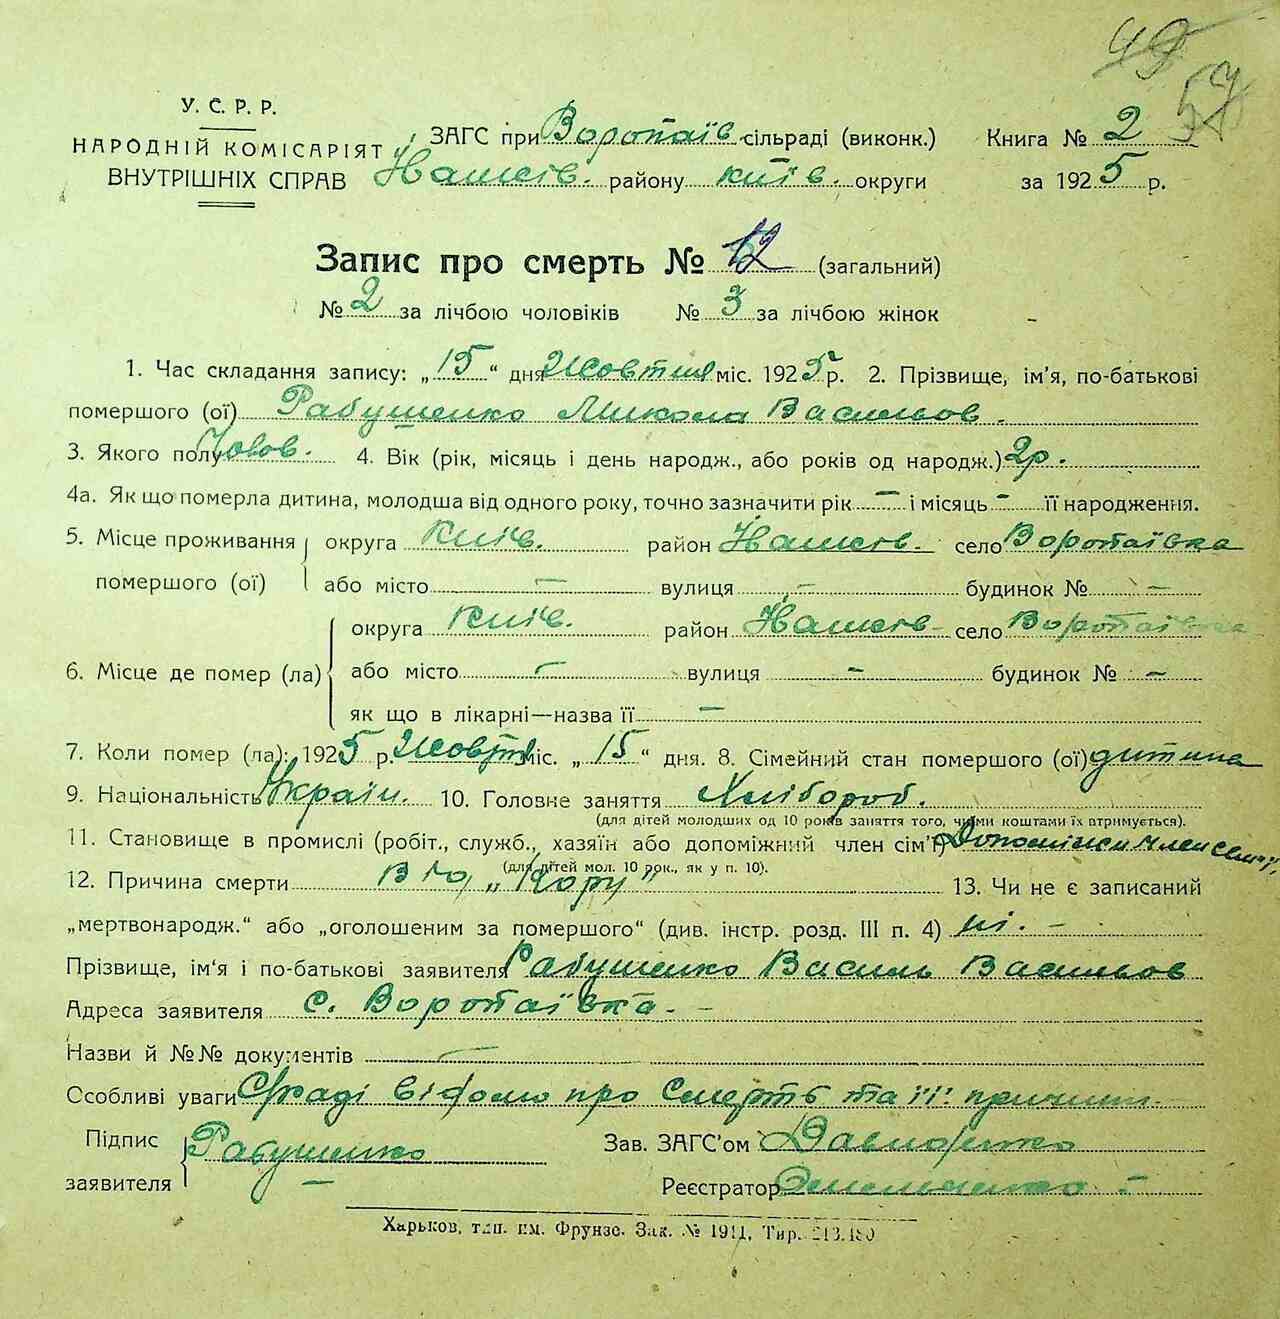 49 57
У. С. Р. Р.
НАРОДНІЙ КОМІСАРІЯТ
ВНУТРІШНІХ СПРАВ
ЗАГС при Воропаїв сільраді (виконк.) Книга № 2
району київ. округи за 1925 р.
Запис про смерть № 12 (загальний)
№ 2 за лічбою чоловіків № 3 за лічбою жінок
1. Час складання запису: „15“ дня Жовтня міс. 1925 р. 2. Прізвище, ім’я, по-батькові
помершого (ої) Рабушенко Микола Васильов.
3. Якого полу Чолов. 4. Вік (рік, місяць і день народж., або років од народж.) 2р.
4а. Як що померла дитина, молодша від одного року, точно зазначити рік — і місяць - її народження.
5. Місце проживання округа Київ. район село Воропаївка
помершого (ої) або місто — вулиця — будинок № —
округа Київ. район село Воропаївка
6. Місце де помер (ла) або місто — вулиця — будинок № —
як що в лікарні—назва її —
7. Коли помер (ла): 1925 р. Жовтн міс. „15“ дня. 8. Сімейний стан помершого (ої) дитина
9. Національність Україн. 10. Головне заняття Хлібороб.
(для дітей молодших од 10 років заняття того, чиїми коштами їх втримується).
11. Становище в промислі (робіт., служб., хазяїн або допоміжний член сім’ї) Допоміжни член сем’ї,
(для дітей мол. 10 рок., як у п. 10).
12. Причина смерти „Кору“ 13. Чи не є записаний
„мертвонародж.“ або „оголошеним за помершого“ (див. інстр. розд. III п. 4) ні. —
Прізвище, ім‘я і по-батькові заявителя Рабушенко Василь Васильов
Адреса заявителя с. Воропаївка. —
Назви й №№ документів —
Особливі уваги Сраді відомо про смерть та її причини.
Підпис
заявителя Рабушенко
Зав. ЗАГС’ом
Реєстратор Омельченко
Харьков, тип. им. Фрунзе. Зак. № 1911, Тир. 213.180